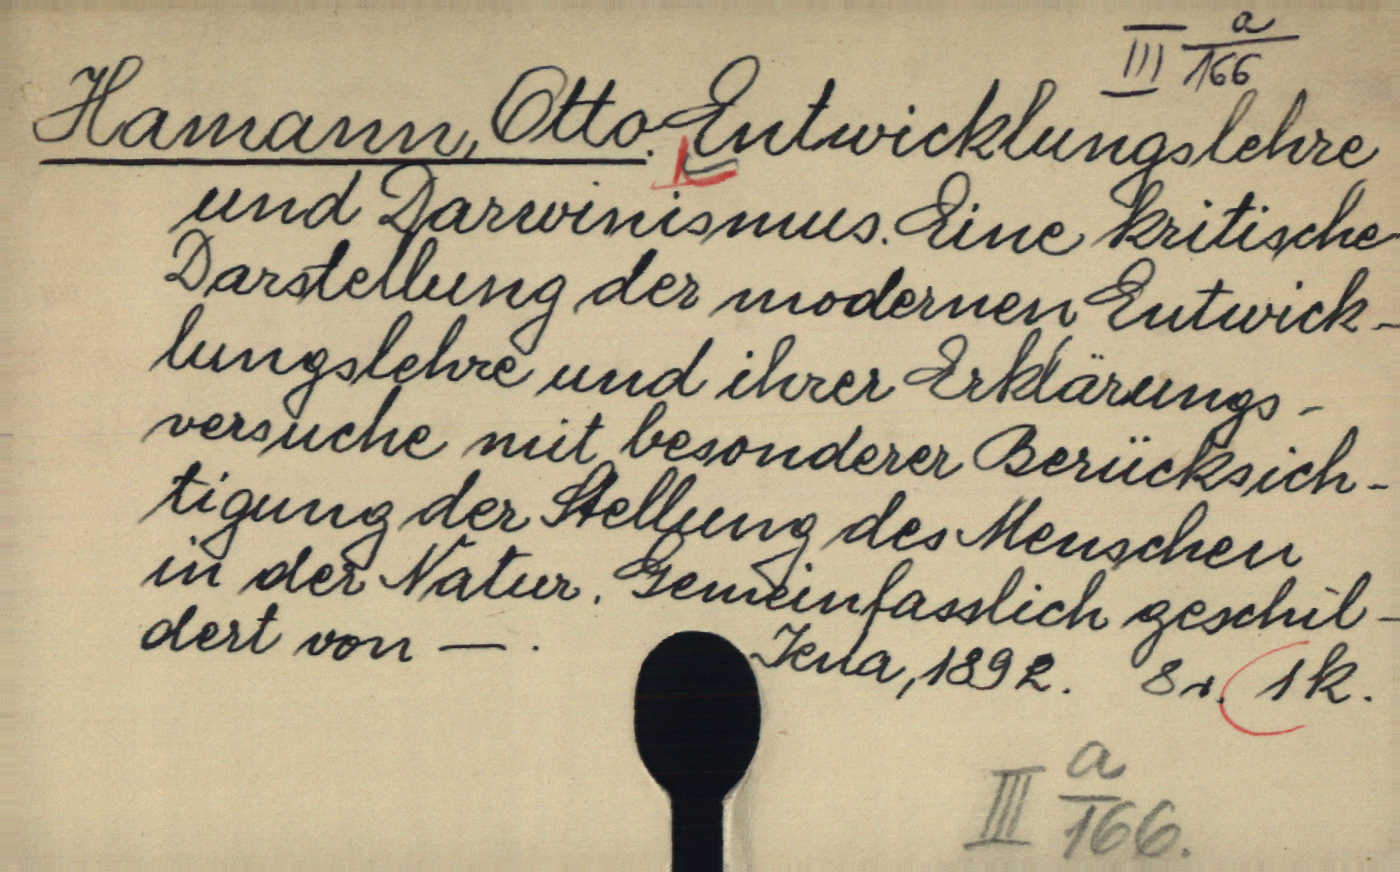 III a/166
Hamann, Otto. Entwicklungslehre
und Darwinismus. Eine kritische
Darstellung der modernen Entwick-
lungslehre und ihrer Erklärungs-
versuche mit besonderer Berücksich-
tigung der Stellung des Menschen
in der Natur. Gemeinfasslich geschil-
dert von — .
Jena, 1892. 8r. 1k.
III a/166.